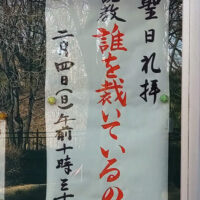 聖日礼拝
誰を裁いているの
二月四日(日)午前十時三十